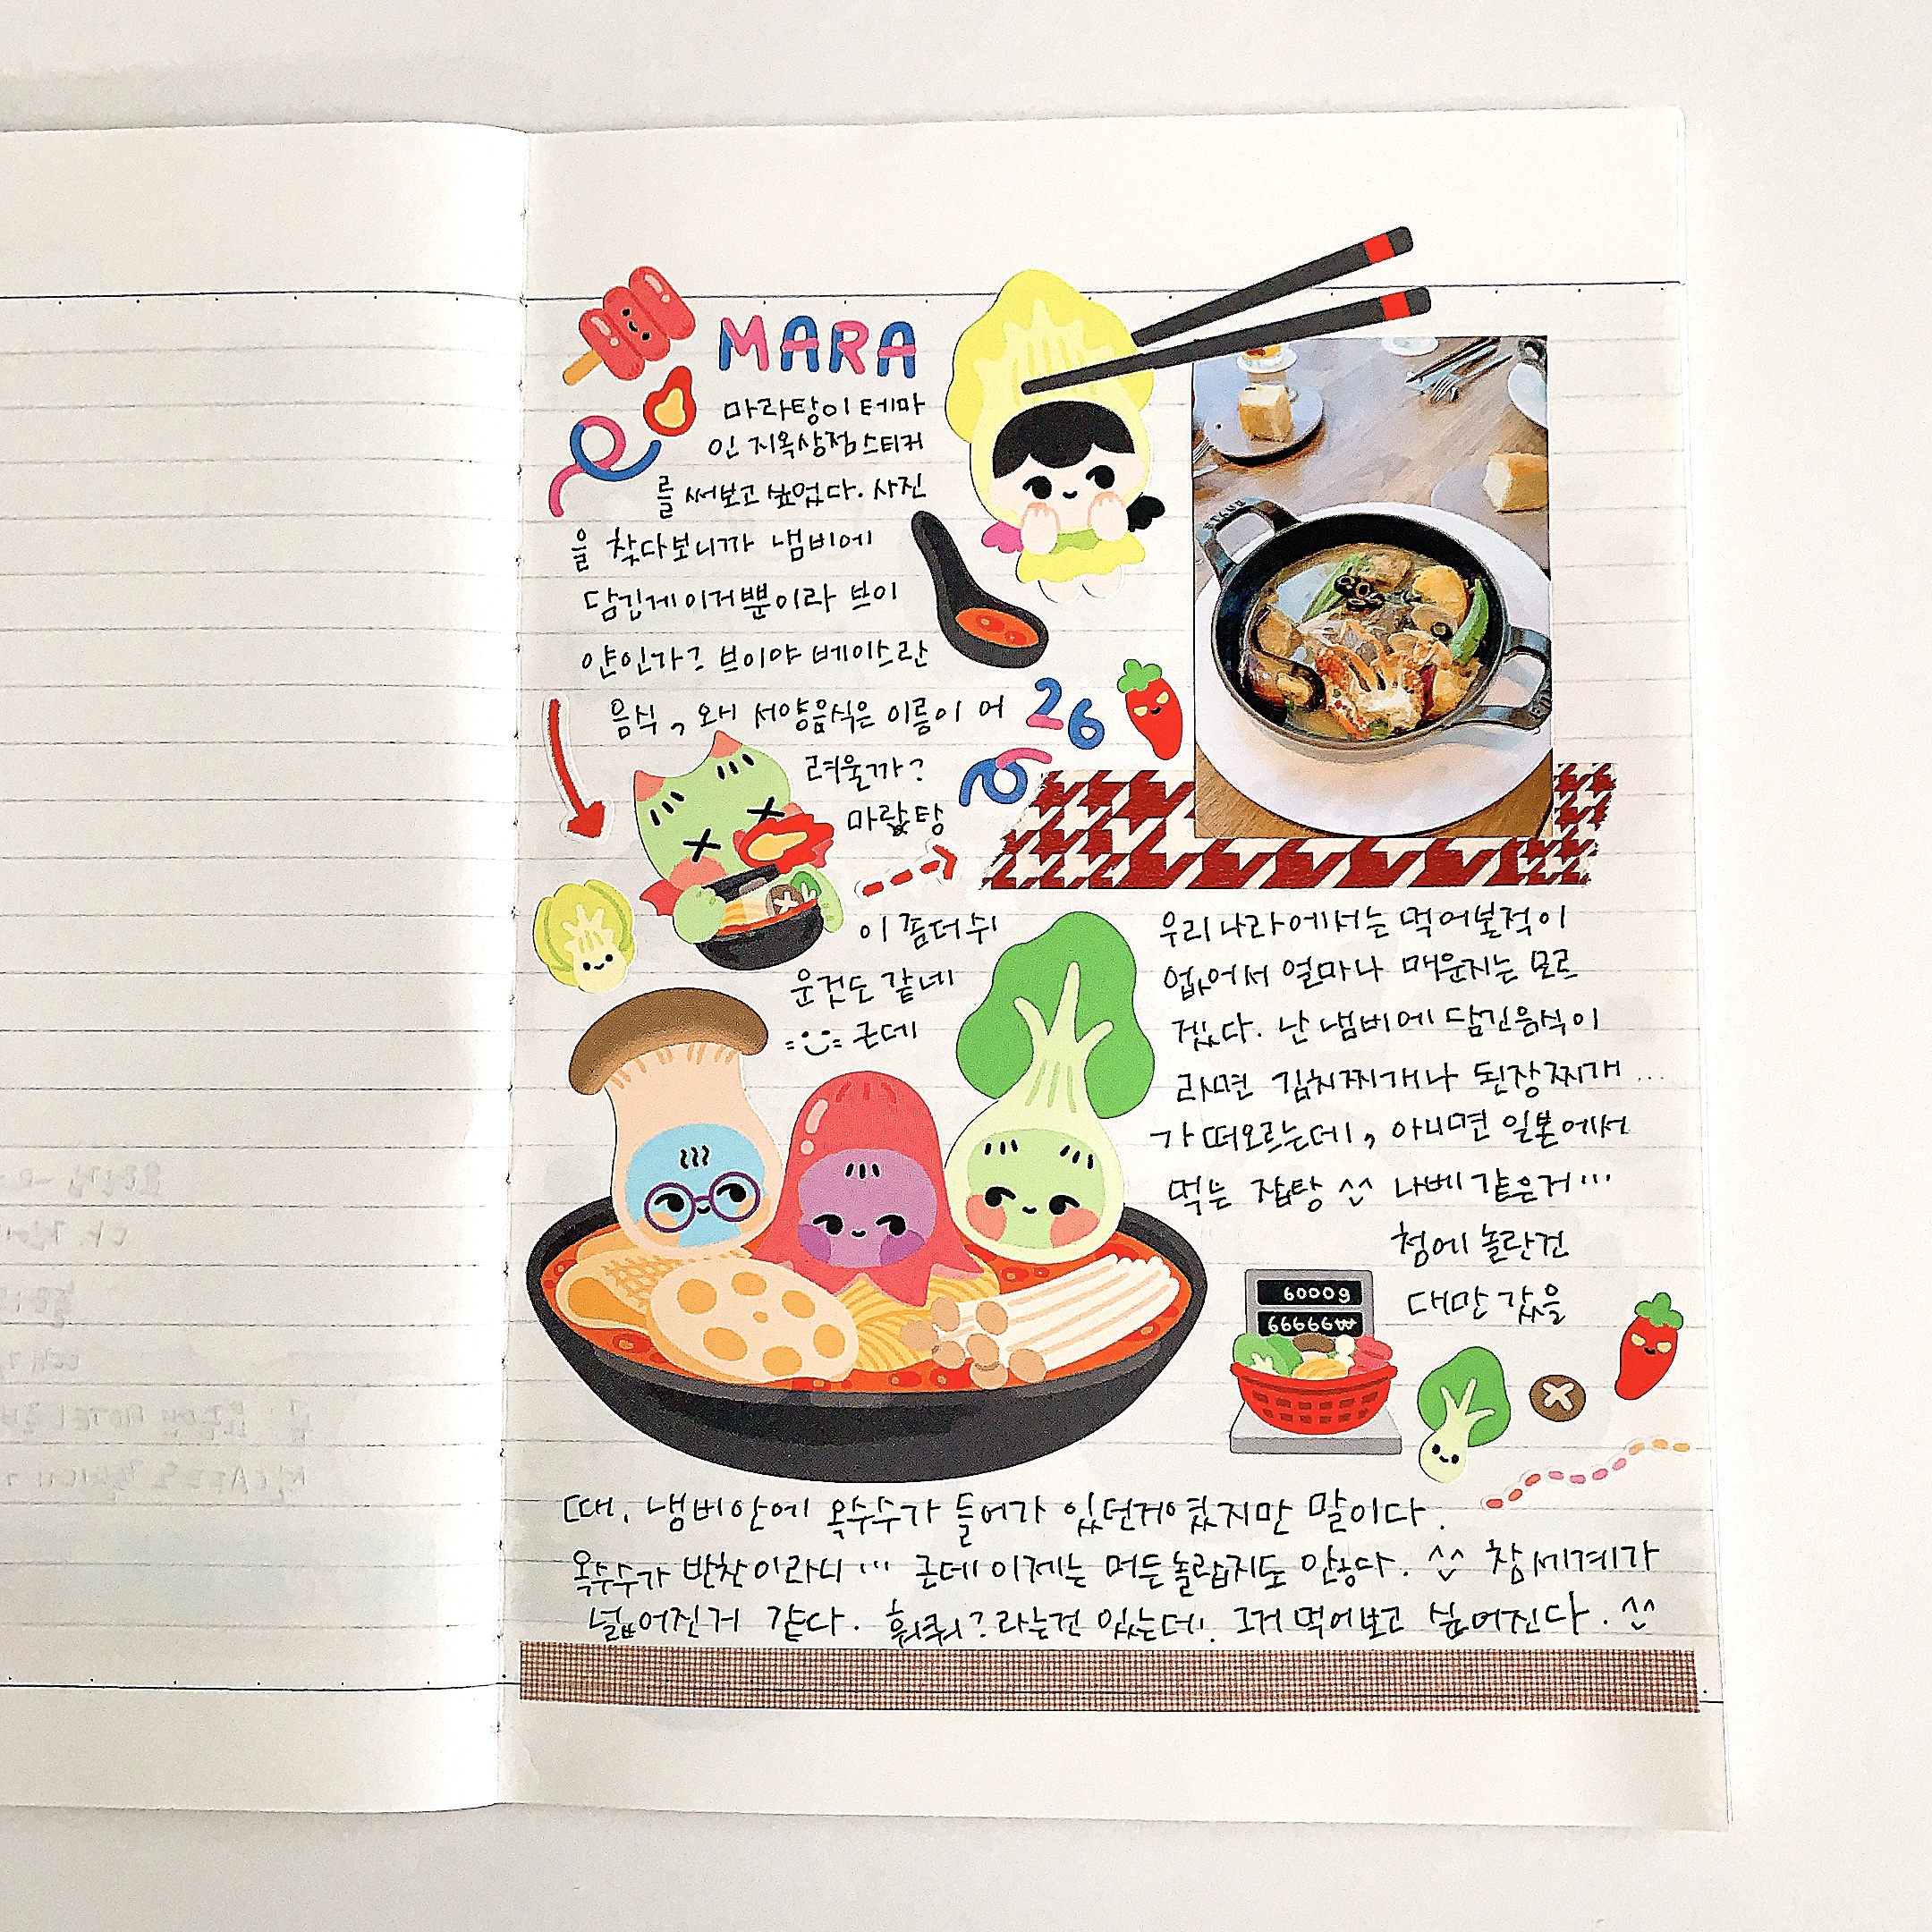 MARA
마라탕이 테마
인 지옥상점스티커
를 써보고싶었다. 사진
을 찾다보니까 냄비에
담긴게이거뿐이라 브이
얀인가? 브이야 베이스란
음식, 왜 서양음식은 이름이 어
26
려울까?
마랖탕
이 좀더쉬
운것도 같네
근데
우리나라에서는 먹어본적이
없어서 얼마나 매운지는 모르
겠다. 난 냄비에 담긴음식이
라면 김치찌개나 된장찌개...
가 떠오르는데, 아니면 일본에서
먹는 잡탕 ^^ 나베 같은거...
첨에 놀란건
대만 갔을
6000g
66666₩
때, 냄비안에 옥수수가 들어가 있던게였지만 말이다.
옥수수가 반찬이라니... 근데 이제는 머든놀랍지도 않다. ^^ 참 세계가
넓어진거 같다. 훠궈? 라는건 있는데, 그거 먹어보고 싶어진다. ^^